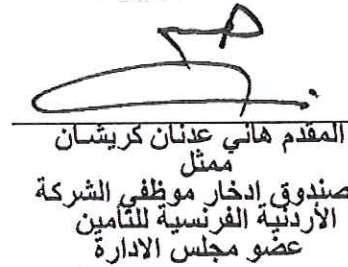 المقدم هاني عدنان كريشان
ممثل
صندوق ادخار موظفي الشركة
الأردنية الفرنسية للتأمين
عضو مجلس الادارة